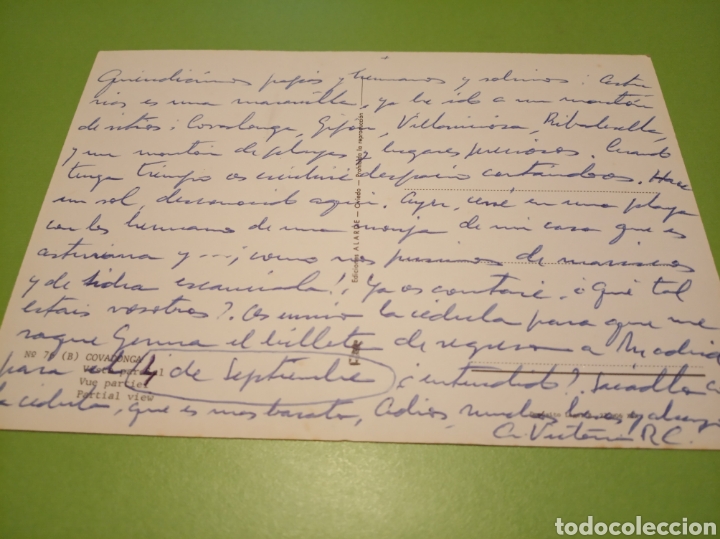 Queridísimos papás y hermanos y sobrinos: Astu
rias es una maravilla, ya he ido a un montón
de sitios: Covadonga, Gijón, Villaviciosa, Ribadesella,
y un montón de playas y lugares preciosos. Cuando
tenga tiempo os escribiré despacio contándoos. Hace
un sol, desconocido aquí. Ayer, cené en una playa
con los hermanos de una monja de mi casa que es
asturiana y ...¡como nos pusimos de mariscos
y de sidra escanciada!. Ya os contaré. ¿Qué tal
estais vosotros?. Os envío la cédula para que me
saque Gema el billete de regreso a Madrid
para el 4 de Septiembre ¿entendido?. Sacadlo c
la cédula, que es mas barato. Adios, muchos besos y
Victoria R.C.
Nº 76 (B) COVADONGA
Vista parcial
Vue partiel
Partial view
Ediciones ALARDE - Oviedo - Prohibida la reproducción
todocoleccion